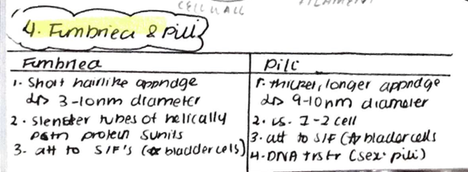 CELL WALL FILAMENT
4. Fimbriea & Pili
Fimbriea
1. Short hairlike appndge
↳ 3-10nm diameter
2. slender tubes of helically
protein sunits
3. att to S/F's (☆ bladder cells)
Pili
1. thicker, longer appndge
↳ 9-10nm diameter
2. us. 1-2 cell
3. att to S/F (☆ bladder cells
4. DNA trstr (sex pili)